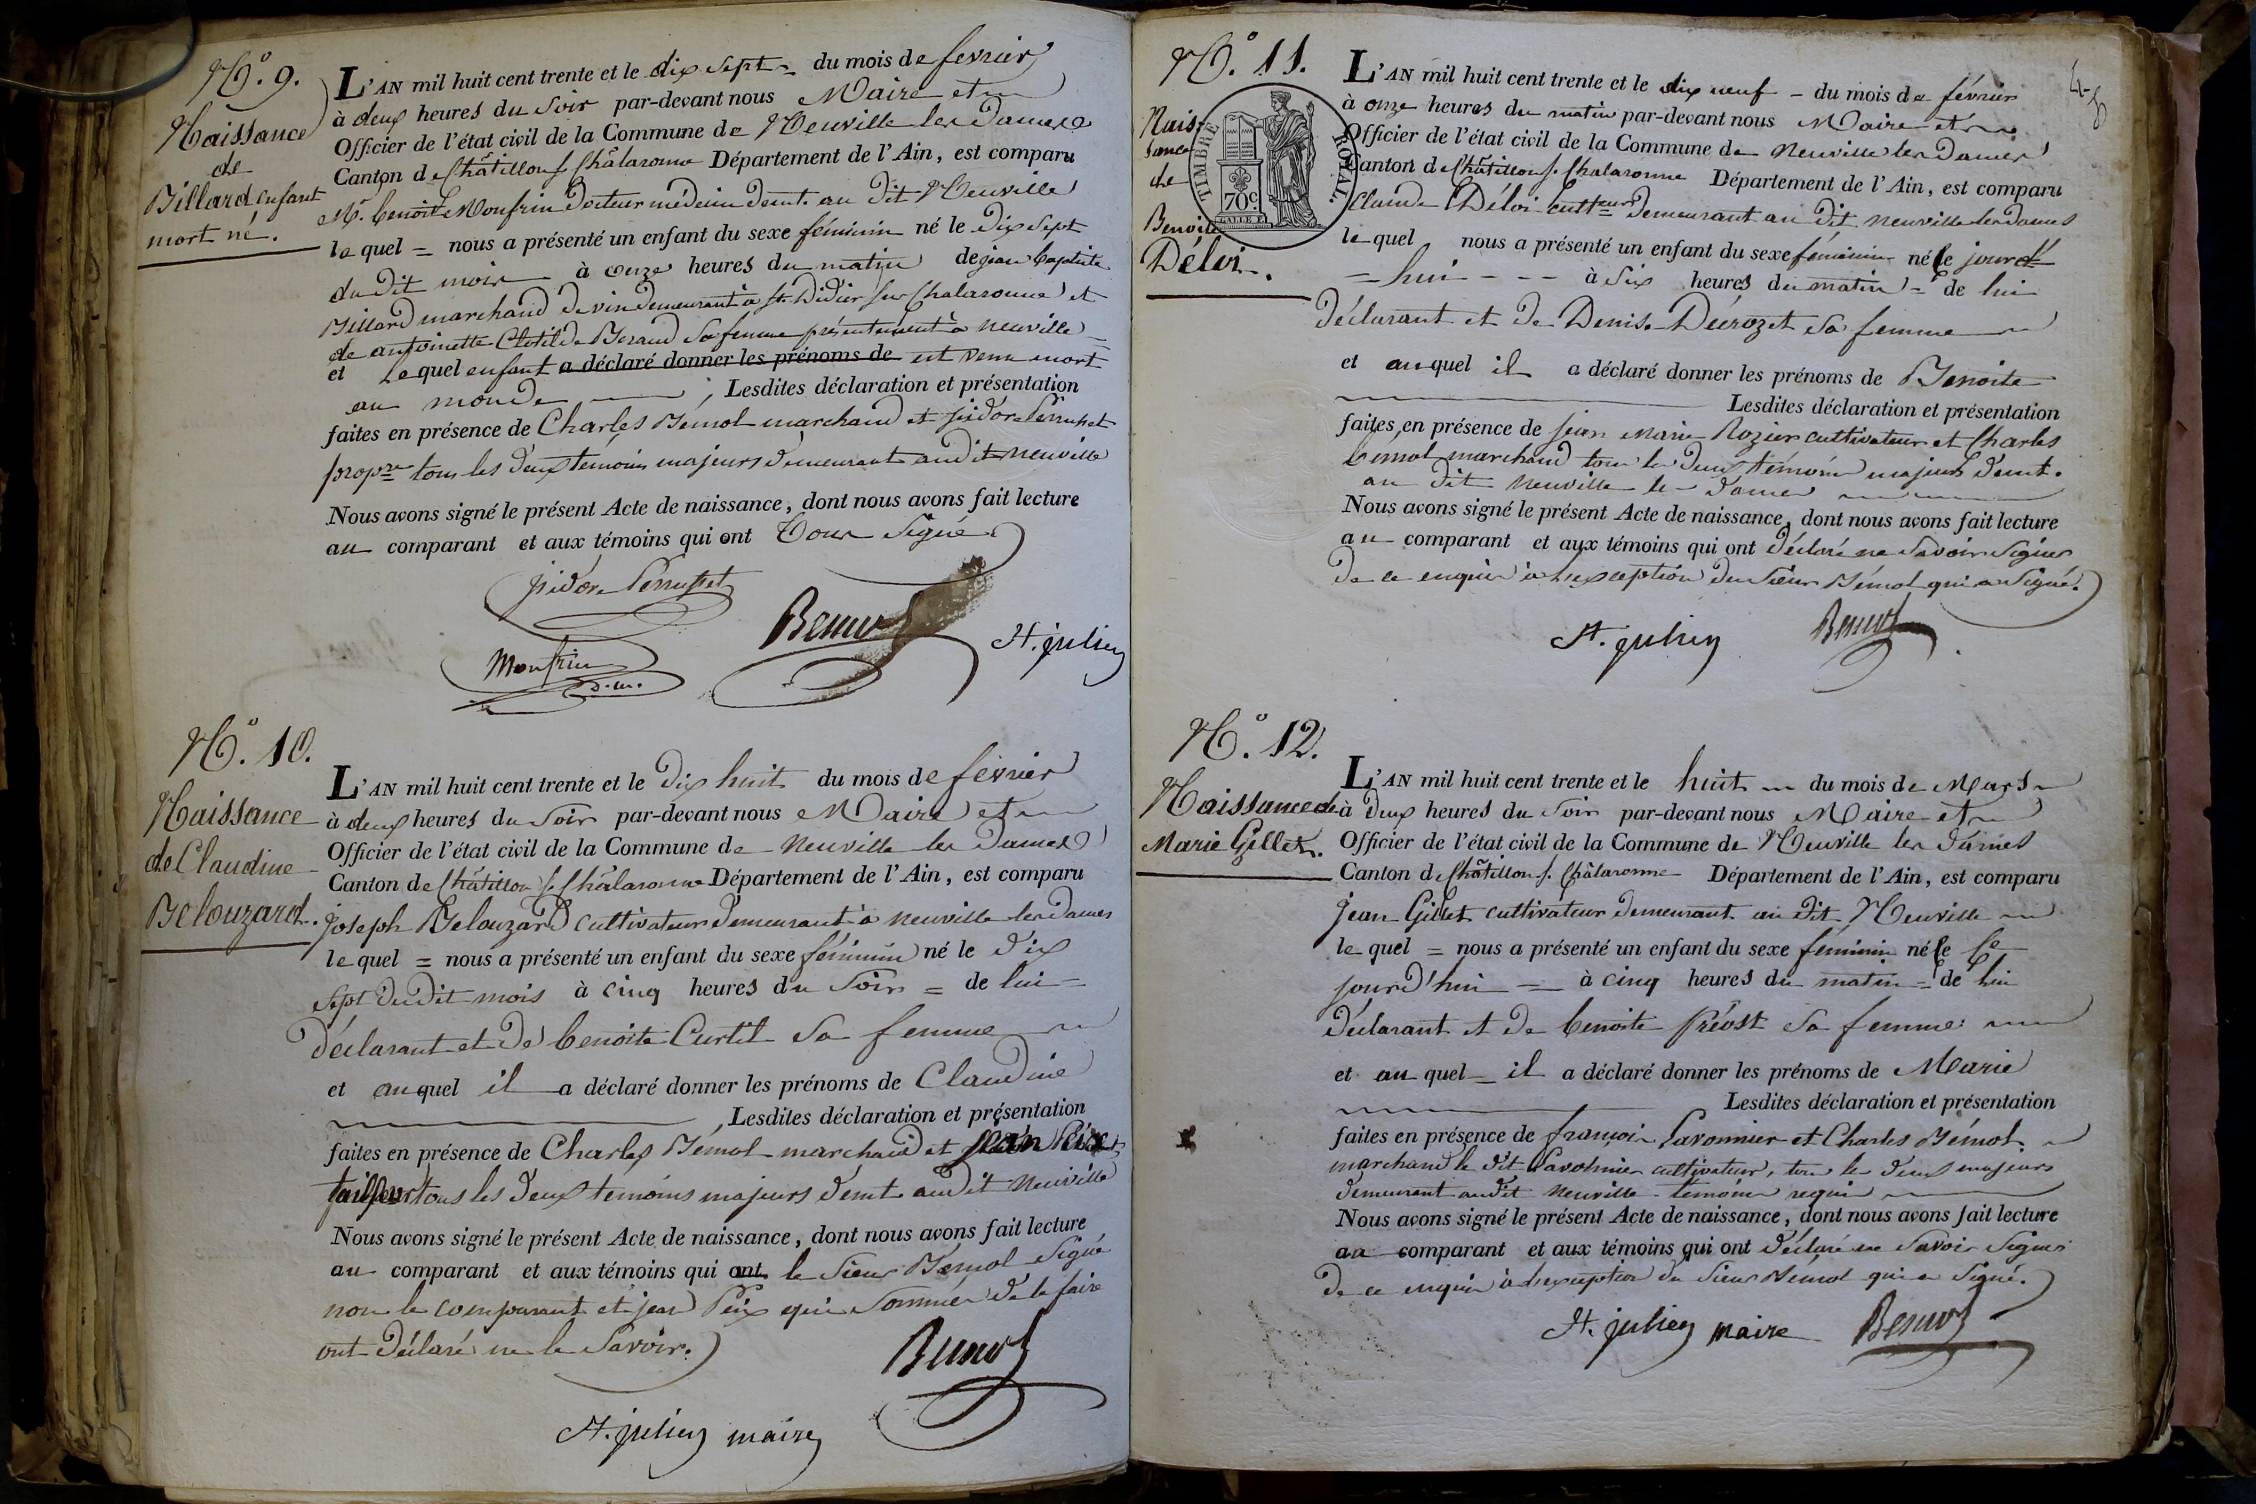 N.º 9.
Naissance
de
Billard enfant
mort né.
L'AN mil huit cent trente et le dix sept = du mois de fevrier
à deux heures du Soir par-devant nous Maire et
Officier de l'état civil de la Commune de Neuville les Dames
Canton de Châtillon s. Châlaronne Département de l'Ain, est comparu
Mr. benoit Monfrin Docteur médecin demt. au dit Neuville
le quel = nous a présenté un enfant du sexe féminin né le Dix Sept
du dit mois à onze heures du matin de jean baptiste
Billard marchand de vin demeurant à St. Didier sur Chalaronne et
de antoinette Clotilde Beraud Sa femme présentement à Neuville =
et Le quel enfant a déclaré donner les prénoms de est venu mort
au monde ; Lesdites déclaration et présentation
faites en présence de Charles Bémol marchand et isidore Perruset
propre tous les deux temoins majeurs demeurant audit Neuville
Nous avons signé le présent Acte de naissance, dont nous avons fait lecture
au comparant et aux témoins qui ont Tous Signé
isidore Perruset
Bemol
St. julien
Monfrin
d. m.
N.º 10.
Naissance
de Claudine
Belouzard.
L'AN mil huit cent trente et le Dix huit du mois de février
à deux heures du Soir par-devant nous Maire et
Officier de l'état civil de la Commune de Neuville les Dames
Canton de Châtillon s. Châlaronne Département de l'Ain, est comparu
joseph Belouzard cultivateur demeurant à Neuville les Dames
le quel = nous a présenté un enfant du sexe féminin né le Dix
Sept du dit mois à cinq heures du Soir = de lui =
Déclarant et de benoite Curtil Sa femme
et au quel il a déclaré donner les prénoms de Claudine
Lesdites déclaration et présentation
faites en présence de Charles Bémol marchand et jean Peix
tailleur tous les deux temoins majeurs demt. audit Neuville
Nous avons signé le présent Acte de naissance, dont nous avons fait lecture
au comparant et aux témoins qui ont le Sieur Bémol Signé
non le comparant et jean Peix qui Sommés de le faire
ont Déclaré ne le Savoir.
Bemol
St. julien maire
N.º 11.
Naissance
de
Benoite
Déloi.
TIMBRE ROYAL.
70c.
L'AN mil huit cent trente et le dix neuf = du mois de février
à onze heures du matin par-devant nous Maire et
Officier de l'état civil de la Commune de Neuville les Dames
Canton de Châtillon s. Chalaronne Département de l'Ain, est comparu
Claude Déloi cultteur demeurant au dit Neuville les Dames
le quel nous a présenté un enfant du sexe féminin né le jourd'
= hui - - - à Six heures du matin = de lui
déclarant et de Denise Décrozet Sa femme
et au quel il a déclaré donner les prénoms de Benoite
Lesdites déclaration et présentation
faites en présence de jean Marie Rozier cultivateur et Charles
bémol marchand tous les deux témoins majeurs demt.
au dit Neuville les Dames
Nous avons signé le présent Acte de naissance, dont nous avons fait lecture
au comparant et aux témoins qui ont déclaré ne Savoir Signer
de ce enquis à l'exception du Sieur Bémol qui a Signé.
St. julien
Bemol
N.º 12.
Naissance de
Marie Gillet.
L'AN mil huit cent trente et le huit du mois de Mars
à Deux heures du Soir par-devant nous Maire et
Officier de l'état civil de la Commune de Neuville les Dames
Canton de Châtillon s. Châlaronne Département de l'Ain, est comparu
jean Gillet cultivateur demeurant au dit Neuville
le quel = nous a présenté un enfant du sexe féminin né le Ce
jourd'hui à cinq heures du matin = de lui
Déclarant et de benoite Prévost Sa femme
et au quel il a déclaré donner les prénoms de Marie
Lesdites déclaration et présentation
faites en présence de françois Pavonnier et Charles Bémol
marchand le dit Pavonnier cultivateur, tous les deux majeurs
demeurant audit Neuville témoins requis
Nous avons signé le présent Acte de naissance, dont nous avons fait lecture
au comparant et aux témoins qui ont déclaré ne Savoir Signer
de ce enquis à l'exception du Sieur Bémol qui a Signé.
St. julien maire
Bemol